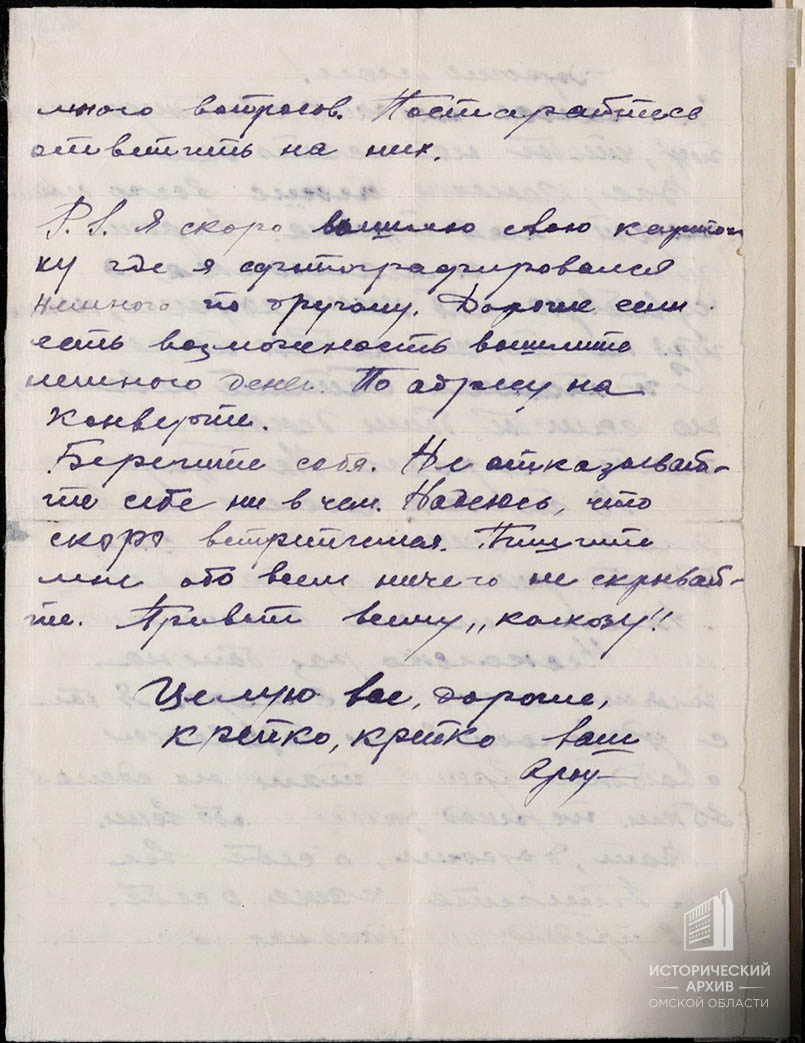 много вопросов. Постарайтесь
ответить на них.
P.S. Я скоро вышлю свою карточ
ку где я сфотографировался
немного по другому. Дорогие если
есть возможность вышлите
немного денег. По адресу на
конверте.
Берегите себя. Не отказывай-
те себе ни в чем. Надеюсь, что
скоро встретимся. Пишите
мне обо всем ничего не скрывай-
те. Привет всему „колхозу"!
Целую вас, дорогие,
крепко, крепко ваш
ИСТОРИЧЕСКИЙ
АРХИВ
ОМСКОЙ ОБЛАСТИ